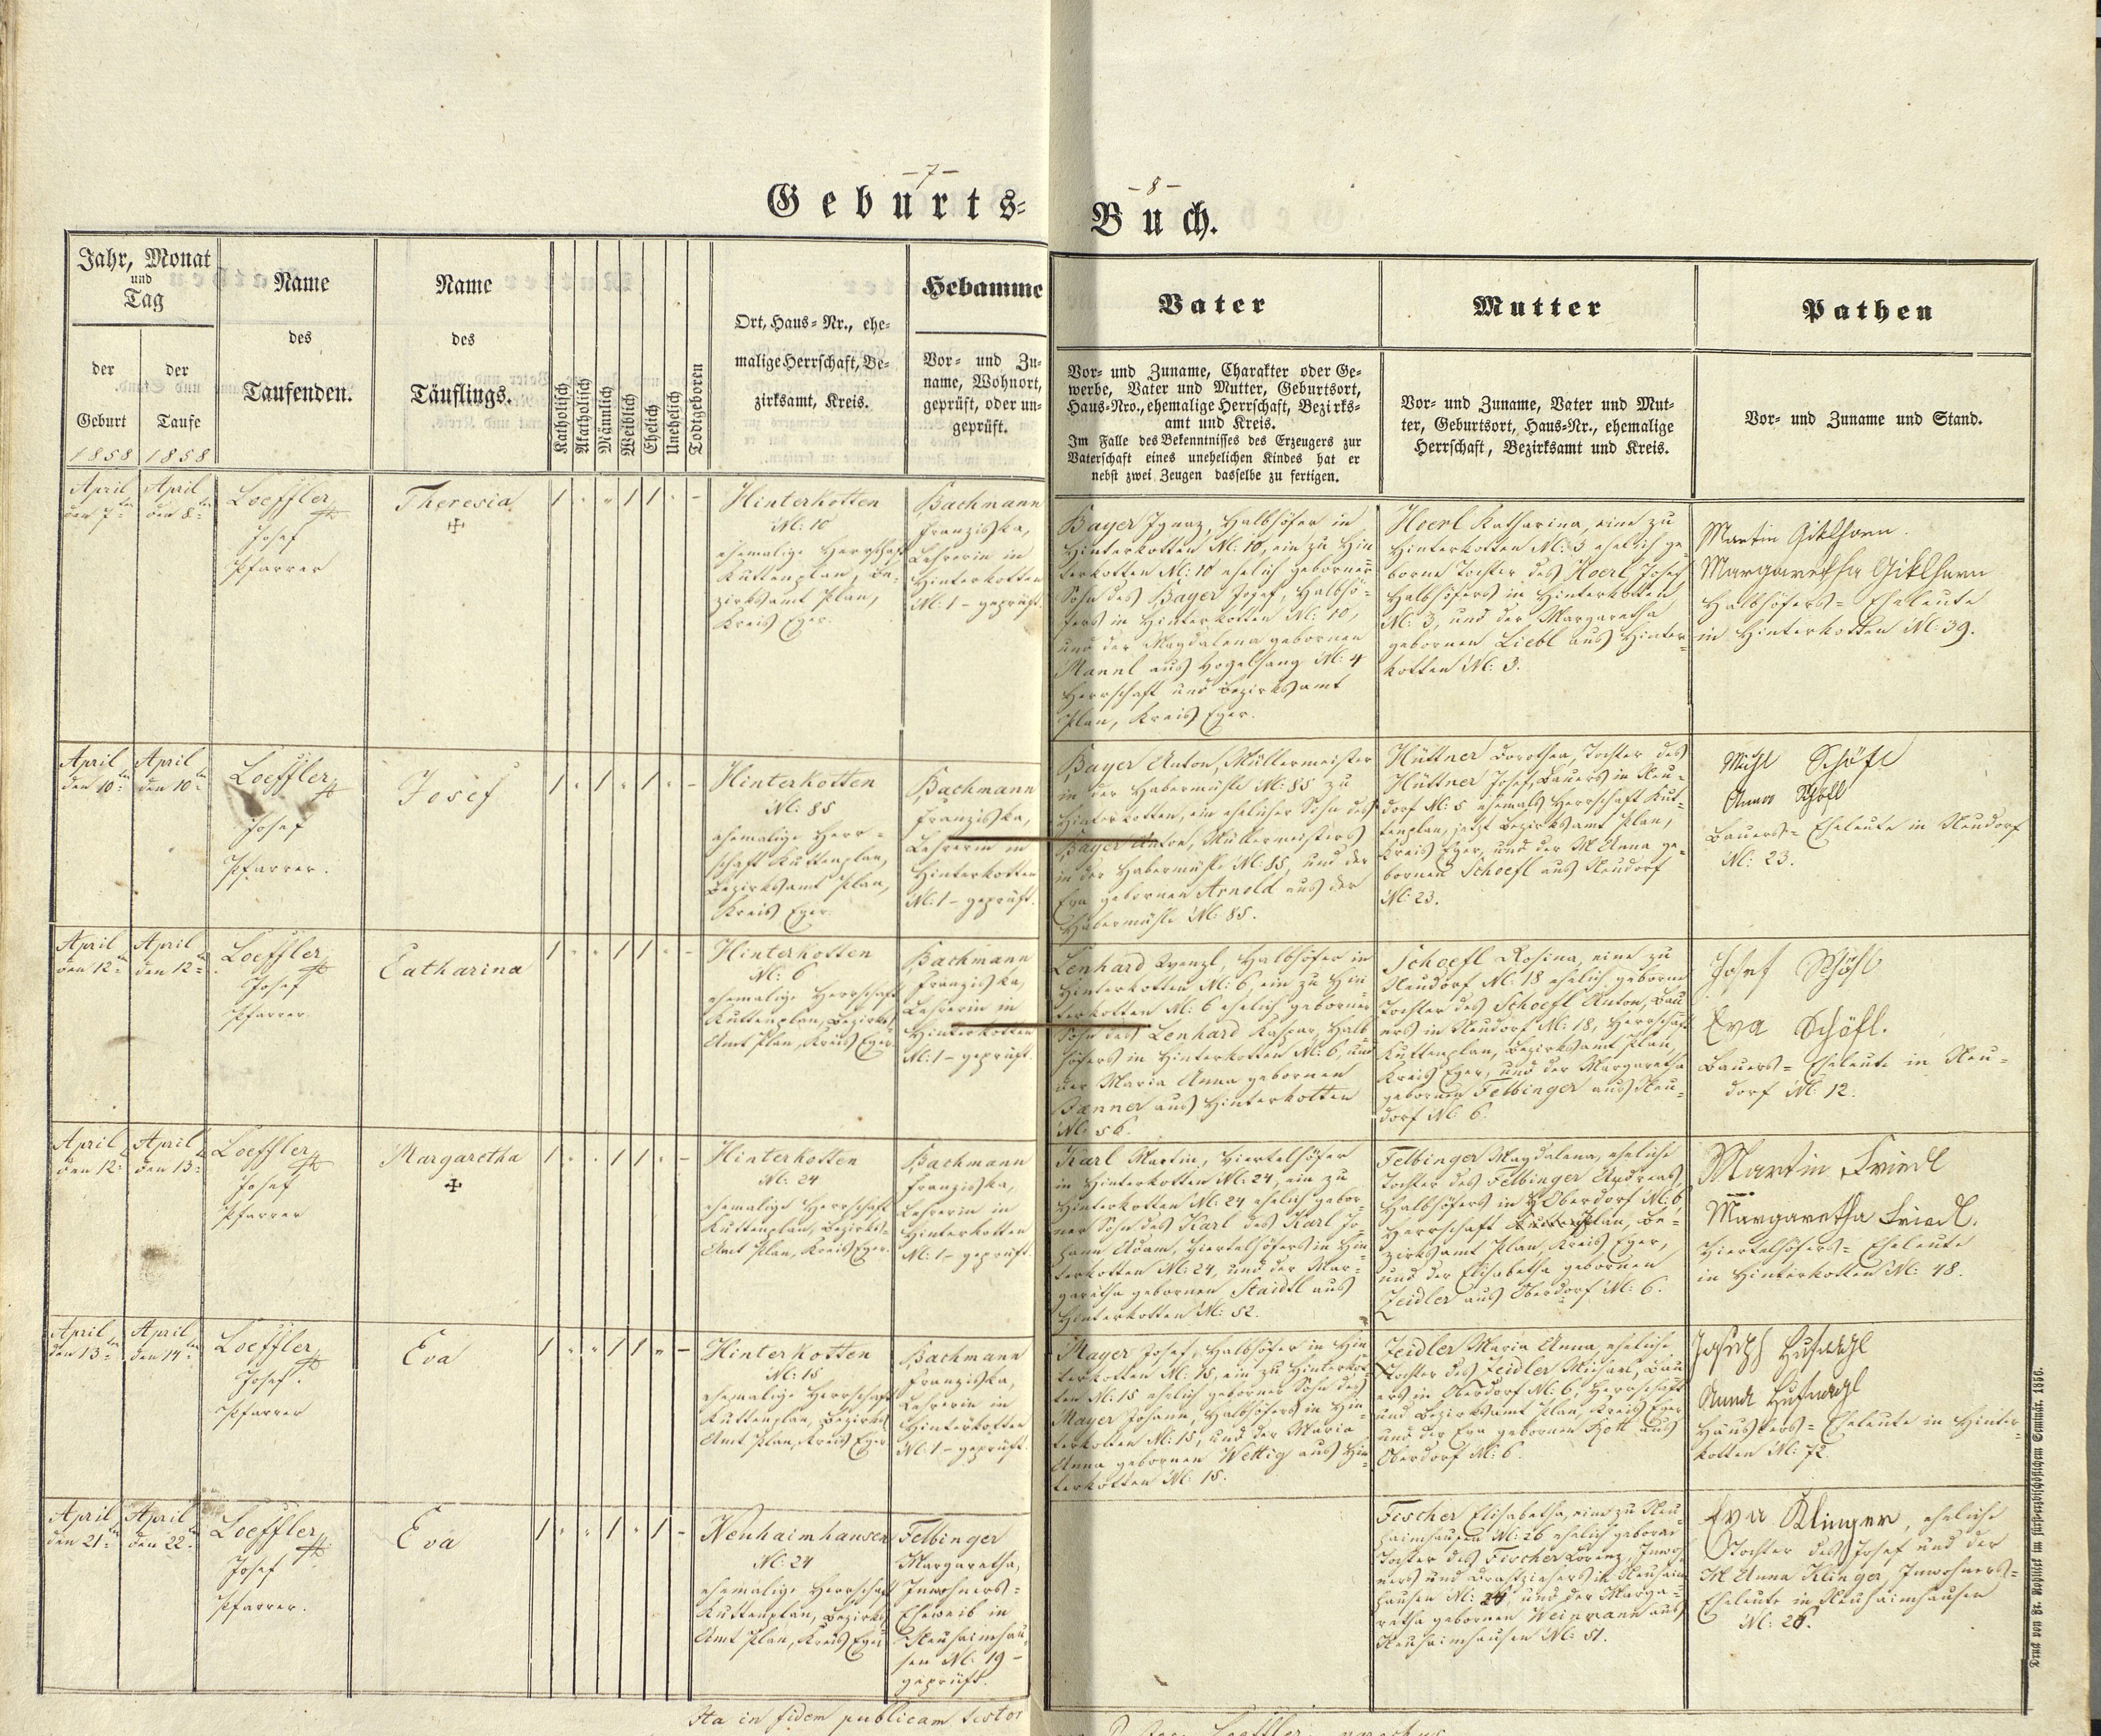 - 7 -
Geburts-
- 8 -
Buch.
Jahr, Monat
und
Tag
der
Geburt
1858
der
Taufe
1858
Name
des
Taufenden.
Name
des
Täuflings.
Katholisch
Akatholisch
Männlich
Weiblich
Ehelich
Unehelich
Todtgeboren
Ort, Haus-Nr., ehe-
malige Herrschaft, Be-
zirksamt, Kreis.
Hebamme
Vor- und Zu-
name, Wohnort,
geprüft, oder un-
geprüft.
Vater
Vor- und Zuname, Charakter oder Ge-
werbe, Vater und Mutter, Geburtsort,
Haus-Nro., ehemalige Herrschaft, Bezirks-
amt und Kreis.
Im Falle des Bekenntnisses des Erzeugers zur
Vaterschaft eines unehelichen Kindes hat er
nebst zwei Zeugen dasselbe zu fertigen.
Mutter
Vor- und Zuname, Vater und Mut-
ter, Geburtsort, Haus-Nr., ehemalige
Herrschaft, Bezirksamt und Kreis.
Pathen
Vor- und Zuname und Stand.
April
den 7ten
April
den 8ten
Loeffler
Josef
Pfarrer
Theresia
Hinterkotten
N: 10
ehemalige Herrschaft
Kuttenplan, Be-
zirksamt Plan,
Kreis Eger.
Bachmann
Franziska,
Lehrerin in
Hinterkotten
N: 1 - geprüft.
Bayer Ignaz, Halbhöfer in
Hinterkotten N: 10, ein zu Hin
terkotten N: 10 ehelich geborner
Sohn des Bayer Josef, Halbhö-
fers in Hinterkotten N: 10,
und der Magdalena gebornen
Mannl aus Vogelsang N: 4
Herrschaft und Bezirksamt
Plan, Kreis Eger.
Hoerl Katharina, eine zu
Hinterkotten N: 3 ehelich ge-
borne Tochter des Hoerl Josef
Halbhöfers in Hinterkotten
N: 3, und der Margaretha
gebornen Liebl aus Hinter-
kotten N: 3.
Martin Giklhorn
Margaretha Giklhorn
Halbhöfers-Eheleute
in Hinterkotten N: 39.
April
den 10ten
April
den 10ten
Loeffler
Josef
Pfarrer.
Josef
Hinterkotten
N: 85
ehemalige Herr-
schaft Kuttenplan,
Bezirksamt Plan,
Kreis Eger.
Bachmann
Franziska,
Lehrerin in
Hinterkotten
N: 1 - geprüft.
Bayer Anton, Müllermeister
in der Habermühle N: 85 zu
Hinterkotten, ein ehelicher Sohn des
Bayer Anton, Müllermeisters
in der Habermühle N: 85, und der
Eva gebornen Arnold aus der
Habermühle N: 85.
Hüttner Dorothea, Tochter des
Hüttner Josef, Bauers in Neu-
dorf N: 5 ehemals Herrschaft Kut-
tenplan, jetzt Bezirksamt Plan,
Kreis Eger, und der M Anna ge-
bornen Schoefl aus Neudorf
N: 23.
Michl Schöfl
Anna Schöfl
Bauers-Eheleute in Neudorf
N: 23.
April
den 12ten
April
den 12ten
Loeffler
Josef
Pfarrer.
Catharina
Hinterkotten
N: 6
ehemalige Herrschaft
Kuttenplan, Bezirks-
Amt Plan, Kreis Eger
Bachmann
Franziska,
Lehrerin in
Hinterkotten
N: 1 - geprüft.
Lenhard Wenzl, Halbhöfer in
Hinterkotten N: 6, ein zu Hin
terkotten N: 6 ehelich geborner
Sohn des Lenhard Kaspar, Halb
höfers in Hinterkotten N: 6, und
der Maria Anna gebornen
aus Hinterkotten
N: 56.
Schoefl Rosina, eine zu
Neudorf N: 18 ehelich geborne
Tochter des Schoefl Anton, Bau
ers in Neudorf N: 18, Herrschaft
Kuttenplan, Bezirksamt Plan,
Kreis Eger, und der Margaretha
gebornen Felbinger aus Neu-
dorf N: 6.
Josef Schöfl
Eva Schöfl.
Bauers-Eheleute in Neu-
dorf N: 12.
April
den 12ten
April
den 13ten
Loeffler
Josef
Pfarrer
Margaretha
Hinterkotten
N: 24
ehemalige Herrschaft
Kuttenplan, Bezirks-
Amt Plan, Kreis Eger.
Bachmann
Franziska,
Lehrerin in
Hinterkotten
N: 1 - geprüft.
Karl Martin, Viertelhöfer
in Hinterkotten N: 24, ein zu
Hinterkotten N: 24 ehelich gebor-
ner Sohn des Karl des Karl Jo-
hann Adam, Viertelhöfers in Hin-
terkotten N: 24, und der Mar-
garetha gebornen Staidtl aus
Hinterkotten N: 52.
Felbinger Magdalena, eheliche
Tochter des Felbinger Andreas,
Halbhöfers in Oberdorf N: 6,
Herrschaft Plan, Be-
zirksamt Plan, Kreis Eger,
und der Elisabetha gebornen
Zeidler aus Oberdorf N: 6.
Martin Friedl
Margaretha Friedl.
Viertelhöfers-Eheleute
in Hinterkotten N: 48.
April
den 13ten
April
den 14ten
Loeffler
Josef.
Pfarrer
Eva
Hinterkotten
N: 15
ehemalige Herrschaft
Kuttenplan, Bezirks
Amt Plan, Kreis Eger
Bachmann
Franziska,
Lehrerin in
Hinterkotten
N: 1 - geprüft.
Mayer Josef, Halbhöfer in Hin
terkotten N: 15, ein zu Hinterkot-
ten N: 15 ehelich geborner Sohn des
Mayer Johann, Halbhöfers in Hin-
terkotten N: 15, und der Maria
Anna gebornen Wettig aus Hin-
terkotten N: 15.
Zeidler Maria Anna, eheliche
Tochter des Zeidler Michael, Bau
ers in Oberdorf N: 6, Herrschaft
und Bezirksamt Plan, Kreis Eger
und der Eva gebornen Kott aus
Oberdorf N: 6.
Joseph Hufnagl
Anna Hufnagl
Häuslers-Eheleute in Hinter-
kotten N: 72.
April
den 21ten
April
den 22ten
Loeffler
Josef
Pfarrer.
Eva
Neuhaimhausen
N: 24
ehemalige Herrschaft
Kuttenplan, Bezirks
Amt Plan, Kreis Eger
Felbinger
Margaretha,
Inwohners-
Eheweib in
Neuhaimhau
sen N: 19 -
geprüft.
Fischer Elisabetha, eine zu Neu-
haimhausen N: 26 ehelich geborne
Tochter des Fischer Lorenz, Inwoh
ners und Drahtziehers in Neuhaim
hausen N: 24, und der Marga-
retha gebornen Weinmann aus
Neuhaimhausen N: 51.
Eva Klinger, eheliche
Tochter des Josef und der
M Anna Klinger, Inwohners-
Eheleute in Neuhaimhausen
N: 26.
Ita in fidem publicam testor
Loeffler, parochus
Druck von Fr. Rohliček im fürsterzbischöflichen Seminär. 1856.